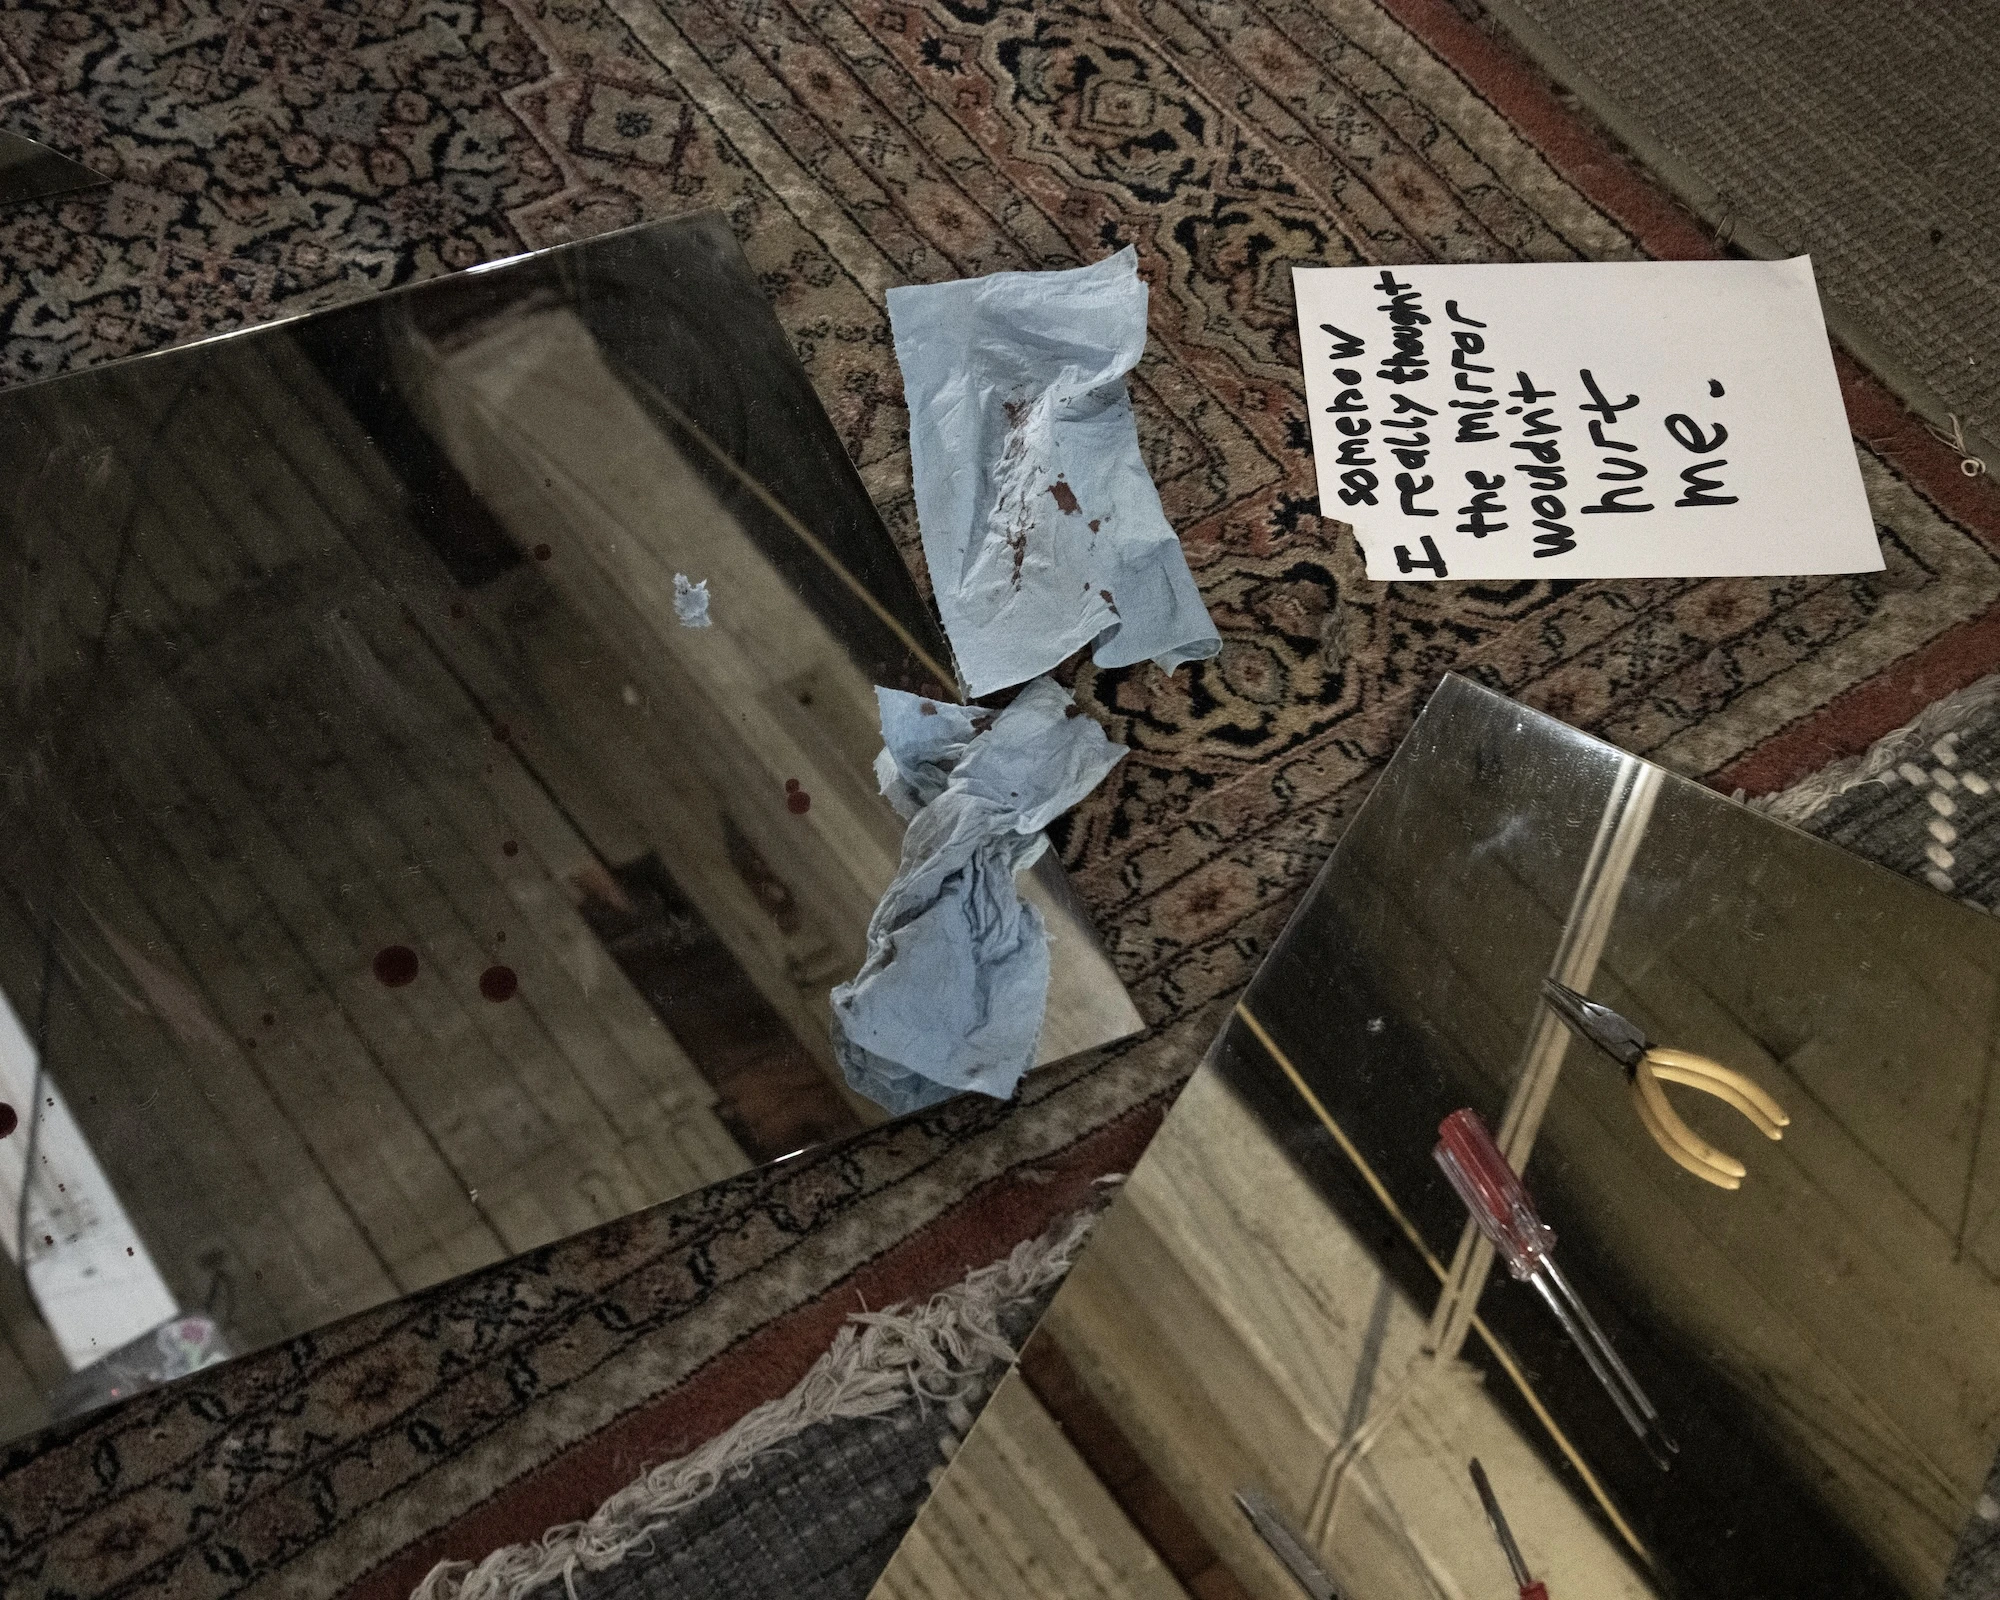 somehow
I really thought
the mirror
wouldn't
hurt
me.